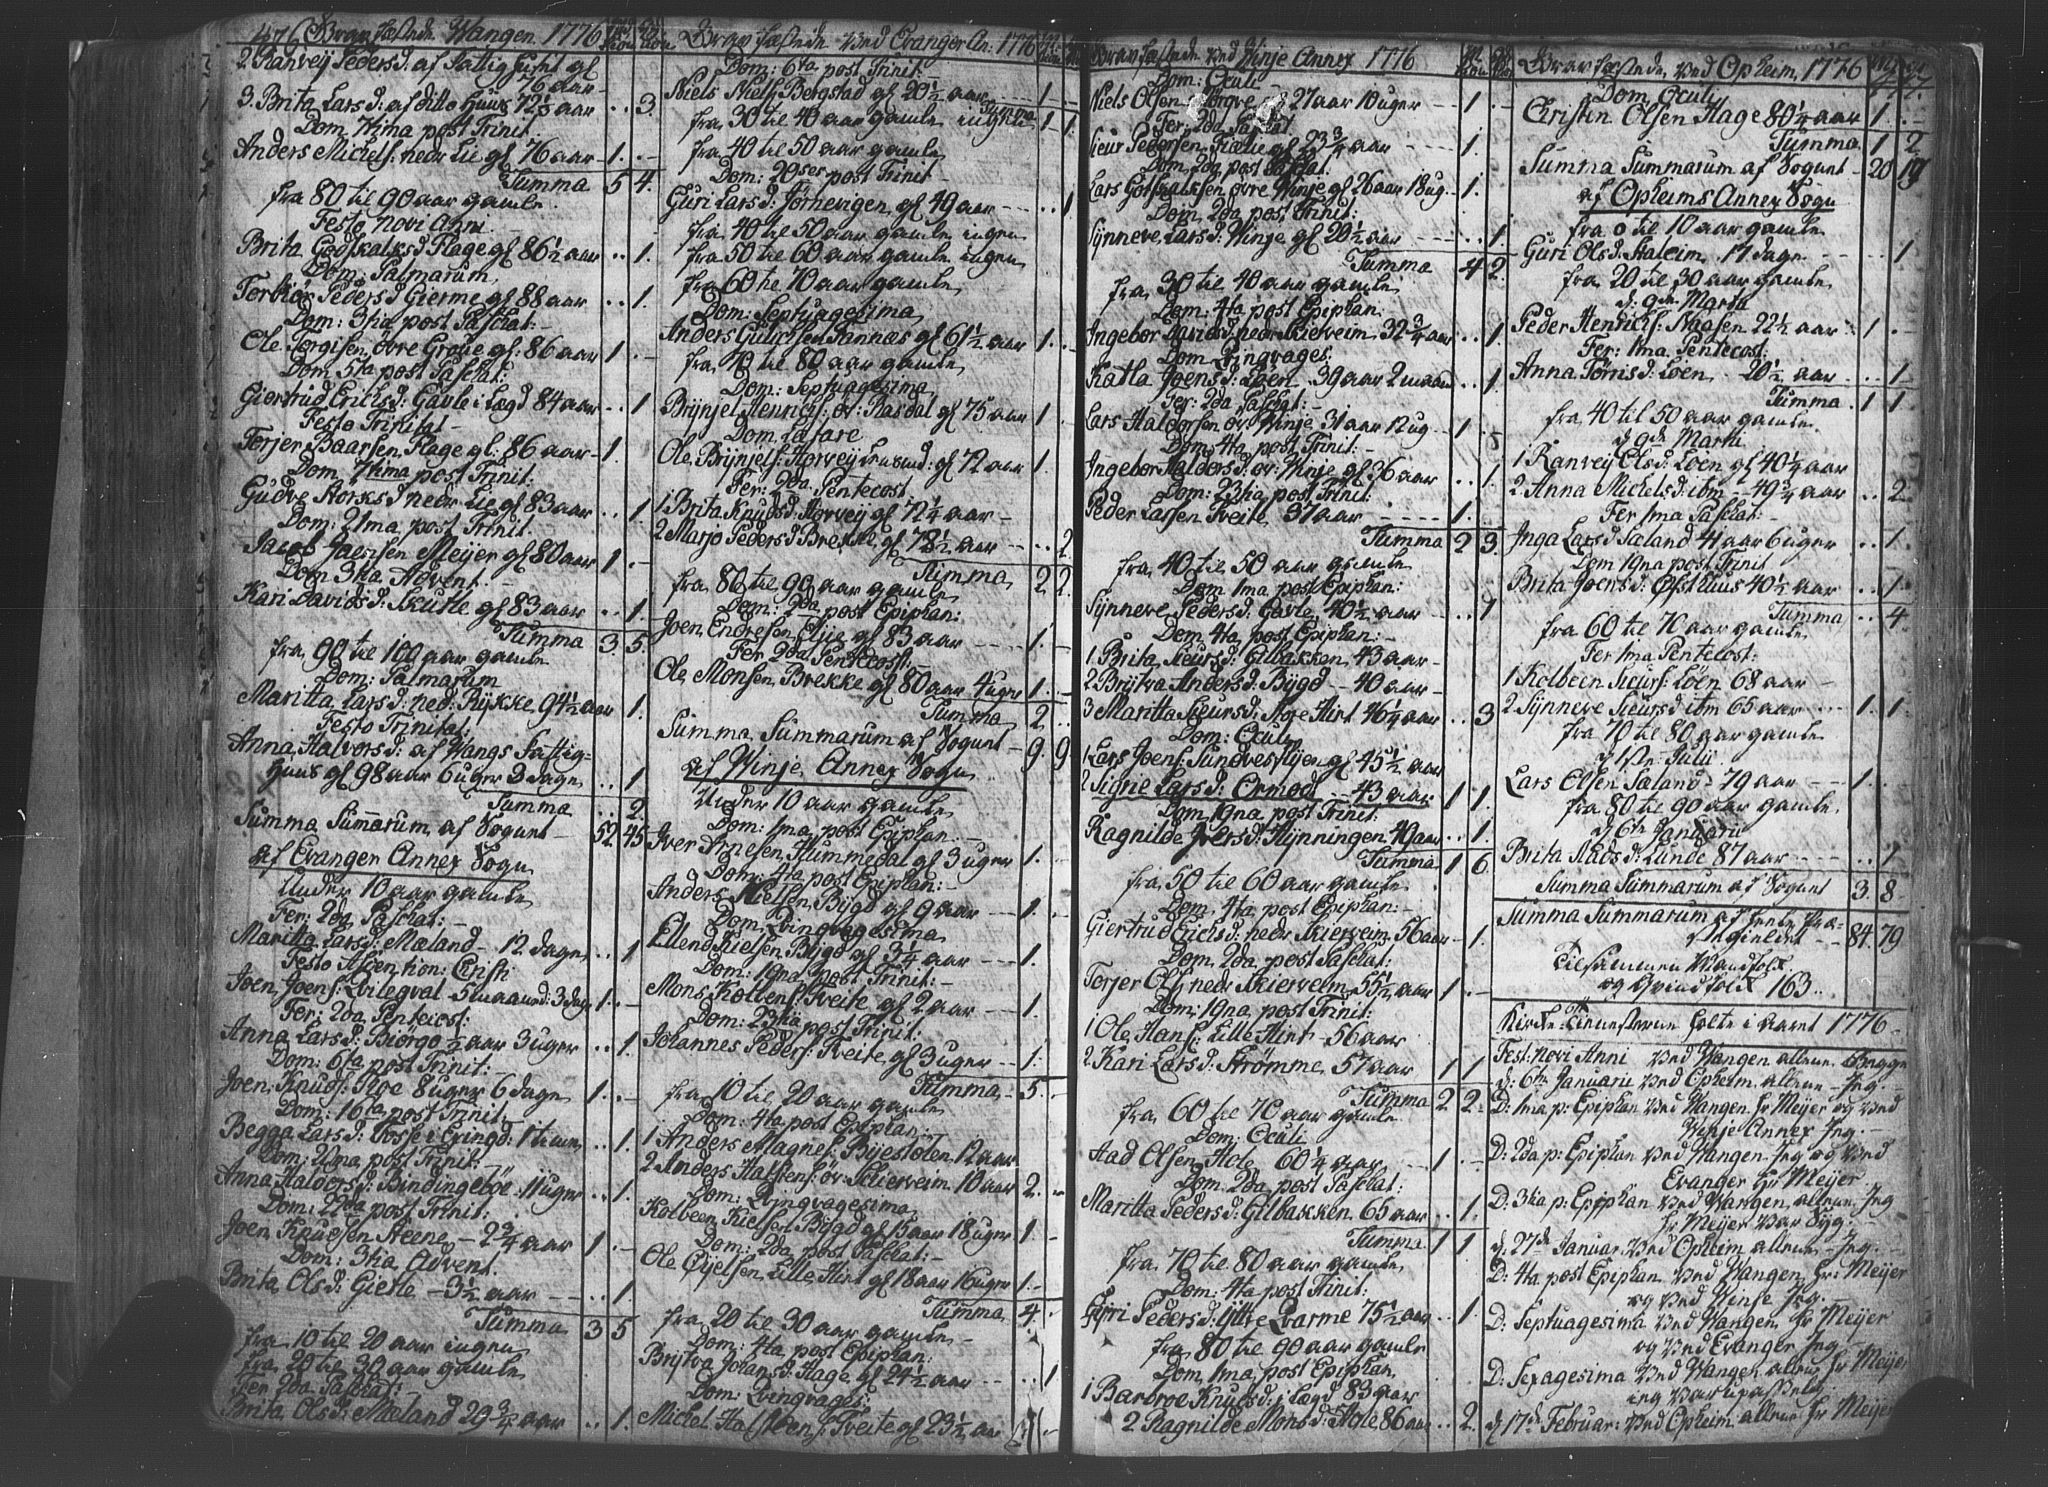 476 Graufæstede Wangen 1776
2 Ranvey Peders d: af Fattig huset gl
76 aar
3. Brita Lars d: af ditto Huus 72½ aar .. 3.
Dom: 7tima post Trinit.
Anders Michels: nedr Lie gl 76 aar 1. –
Summa 5 4.
fra 80 til 90 aar gamle
Festo novi Anni
Brita Godskalks d Flage gl 86½ aar .. 1.
Dom: Palmarum
Torbiør Peders d Gierme gl 88 aar .. 1.
Dom: 3tia post Paschat:
Ole Torgisen øvre Grove gl: 86 aar 1 .–
Dom 5ta post Paschat:
Giertrud Erichs d: Gavle i Lægd 84 aar .. 1
Festo Trinitat–
Torjer Baarsen Flage gl: 86 aar 1.
Dom 7tima post Trinit:
Gudve Storks d nedr Lie gl 83 aar .. 1.
Dom: 21ma post Trinit.
Jacob Jaensen Meijer gl 80 aar 1 .–
Dom 3tia Advent.
Kari Davids d: Skutle gl 83 aar .. 1.
Summa 3. 5.
fra 90 til 100 aar gamle
Dom: Palmarum
Maritta Lars d: ned: Rykke 94½ aar 1.
Festo Trinitat:
Anna Halvors d: af Wangs Fattig-
Huus gl 98 aar 6 uger 3 dage .. 1
Summa .. 2.
Summa Sum̄arum af Sognet – 52. 45
af Evanger Annex Sogn
Under 10 aar gamle
Fer: 2da Paschat:–
Maritta Lars d: Mæland – 12 dage .. 1
Festo Ascention: Christi
Joen Joens: Qvilegval 5 maaned: 3 dag 1 .–
Fer: 2da Pentecost:
Anna Lars d: Biørgo ½ aar 3 uger .. 1.
Dom: 6ta post Trinit:–
Joen Knuds: Roe 8 uger 6 dage 1 .–
Dom: 16ta post Trinit:
Begga Lars d: Fosse i Exingd: 1 time .. 1.
Dom: 21ma post Trinit:–
Anna Haldors d: Bindingebøe 11 uger .. 1.
Dom: 22da post Trinit:
Joen Knudsen Steene – 2¾ aar 1. –
Dom: 3tia Advent.
Brita Ols d: Gierle – 3½ aar – – .. 1
Summa 3 5
fra 10 til 20 aar ingen
fra 20 til 30 aar gamle
Fer 2da Paschat:
Brita Ols d: Mæland 29¾ aar .. 1.
Grauf fæstede ved Evanger An: 1776
Dom: 6ta post Trinit:
Niels Niels: Bergstad gl 20½ aar 1
Summa 1 1.
fra 30 til 40 aar gamle ingen
fra 40 til 50 aar gamle
Dom: 20ses post Trinit–
Guri Lars d: Tørhevigen gl 49 aar .. 1
fra 40 til 50 aar gamle ingen
fra 50 til 60 aar gamle ingen
fra 60 til 70 aar gamle
Dom: Septuagesima
Anders Gulichsen Fannæs gl 61½ aar 1.
fra 70 til 80 aar gamle
Dom: Septuagesima
Brynjel Henrichs: øv: Rasdal gl 75 aar 1.
Dom: Lætare
Ole Brynjels: Horvey Lensmd: gl 72 aar 1.
Fer: 2da Pentecost
1 Brita Knuds d: Horvey gl 72¼ aar –
2 Marjo Peders d Brekke gl 78½ aar .. 2.
Summa 2 2.
fra 80 til 90 aar gamle
Dom: 2da post Epiphan:
Joen Endresen Flije gl 83 aar 1.
Fer 2da Pentecost:–
Ole Monsen Brekke gl 80 aar 4 uger 1 .–
Summa 2 ..
Summa Summarum af Sognet – 9 9
af Winje Annex Sogn
Under 10 aar gamle
Dom: 1ma post Epiphan:–
Iver Arnesen Hummedal gl 3 uger 1.
Dom: 4ta post Epiphan:–
Anders Kielsen Bygd gl 9 aar 1.
Dom: Qvingvagesima
Ellend Kielsen Bygd gl 3¼ aar 1.
Dom: 19na post Trinit:–
Mons Kolbens: Tveite gl 2 aar 1
Dom: 23tia post Trinit:
Johannes Peders: Tveite gl 3 uger 1.
Summa 5
fra 10 til 20 aar gamle
Dom: 4ta post Epiphan:
1 Anders Magnes: Bijestølen 12 aar
2 Anders Halstens: øv: Skierveim 10 aar 2.
Dom: Qvingvagesima
Kolbeen Kielsen Bygd gl 15 aar 18 uger 1
Dom: 2da post Paschat:–
Ole Eijelsen Lille Flint gl 18 aar 16 uger 1.
Summa 4 .
fra 20 til 30 aar gamle
Dom: 4ta post Epiphan:
Brytva Johans d: Hage gl 24½ aar .. 1
Dom: Qvingvages:
Michel Halsteens: Tveite gl 23½ aar
Grauf fæstede ved Winje Annex 1776
Dom: Oculi
Niels Olsen 27 aar 10 uger 1.
Fer: 2da Paschat
Siur Pedersen Fiælie gl 23¾ aar 1.
Dom 2da post Paschat:
Lars Gotskalksen øvre Winje gl 26 aar 18 ug. 1.
Dom: 2da post Trinit:
Synneve Lars d: Winje gl 20½ aar .. 1.
Summa 4 2.
fra 30 til 40 aar gamle
Dom: 4ta post Epiphan.
Ingebor d nedr Skierveim 32¾ aar .. 1.
Dom: Qvingvages:
Katla Joens d: Løen 39 aar 2 maan .. 1.
Fer: 2da Paschat:–
Lars Haldorsen øv: Winje 31 aar 12 ug. 1
Dom 4ta post Trinit:–
Ingebor Haldors d: øv: Winje gl 36 aar .. 1.
Dom: 23tia post Trinit:
Peder Larsen Tveite 37 aar 1.
Summa 2 3.
fra 40 til 50 aar gamle
Dom 1ma post Epiphan:
Synneve Peders d: Gavle, 40½ aar .. 1
Dom: 4ta post Epiphan:–
1 Brita Siurs d: Gilbakken 43 aar –
2 Brytva Anders d: Bygd – 40 aar –
3 Maritta Siurs d: Store Flint 46¼ aar .. 3
Dom: Oculi
1 Lars Joens: Sundvesflijen gl 45½ aar
2 Signe Lars d: Ormod – 43 aar 1 1.
Dom: 19na post Trinit:
Ragnilde Ivers d: Flynningen 49 aar .. 1.
Summa 1 6.
fra 50 til 60 aar gamle
Dom: 4ta post Epiphan:–
Giertrud Erichs d: nedr Skierveim 56 aar .. 1.
Dom: 2da post Paschat:
Torjer Ols: nedr Skierveim 55½ aar 1 .
Dom: 19na post Trinit:
1 Ole Hans: Lille Flint – 56 aar
2 Kari Lars d: Strømme 57 aar 1 1
Summa 2 2.
fra 60 til 70 aar gamle
Dom: Oculi
Aad Olsen Hole 60¼ aar 1 .–
Dom: 2da post Paschat:
Maritta Peders d: Gilbakken 65 aar .. 1.
Summa 1 1.
fra 70 til 80 aar gamle
Dom: 4ta post Trinit:
Gyri Peders d: ytre Qvarme 75½ aar .. 1.
fra 80 til 90 aar gamle
Dom, 1ma, post Epiphan.
1 Barbroe Knuds d: i Lægd 83 aar
2 Ragnilde Mons d: Hole 86 aar .. 2.
Grauf fæstede ved Opheim 1776 477.
Dom Oculi
Christen Olsen Hage 80¼ aar 1 .–
Summa 1 2
Summa Summarum af Sognet – 20 19
af Opheims Annex Sogn
fra 0 til 10 aar gamle
Guri Ols d: Staleim 17 dage .. 1
fra 20 til 30 aar gamle
d: 9de Martii
Peder Henrichs: Naasen 22½ aar 1 .–
Fer: 1ma Pentecost:
Anna Torris d: Løen 20½ aar .. 1
Summa 1 1.
fra 40 til 50 aar gamle
d 9de Martii
1 Ranvey Ols d: Løen gl 40¼ aar
2 Anna Michels d: ibm – 49¾ aar .. 2.
Fer 1ma Paschat:–
Inga Lars d Sæland 41 aar 6 uger .. 1.
Dom 19na post Trinit
Brita Joens d: Østhuus 40½ aar .. 1
Summa .. 4.
fra 60 til 70 aar gamle
Fer 1ma Pentecost:
1 Kolbeen Siurs: Løen 68 aar –
2 Synneve Siurs d ibm 65 aar 1 1.
fra 70 til 80 aar gamle
d 1ste Julii
Lars Olsen Sæland – 79 aar 1 .
fra 80 til 90 aar gamle
d 6te Januarii
Brita Aads d: Lunde 87 aar .. 1
Summa Summarum af Sognet 3. 8
Summa Summarum af heele Præ-
stegieldet – 84. 79
Tilsammen Mandfolk
og Qvindfolk 163.
Kirke-Tienesterne holte i aaret 1776 –
Fest: novi Anni ved Wangen allene Begge
d: 6te Januarii ved Opheim allene – Jeg –
D: 1ma p: Epiphan ved Wangen Hr Meijer og ved
Winje Annex Jeg –
D: 2da p: Epiphan ved Wangen Jeg og ved
Evanger Hr Meijer.
D: 3tia p: Epiphan ved Wangen allene Jeg
Hr Meijer var Syg –
d: 27de Januar: ved Opheim allene – Jeg –
D: 4ta post Epiphan ved Wangen Hr: Meijer
og ved Vinje Jeg –
D: Septuagesima ved Wangen Hr Meijer
og ved Evanger Jeg –
D: Sexagesima ved Wangen allene Hr Meijer
jeg var upasselig
d 17de Februar: ved Opheim allene Hr Meijer